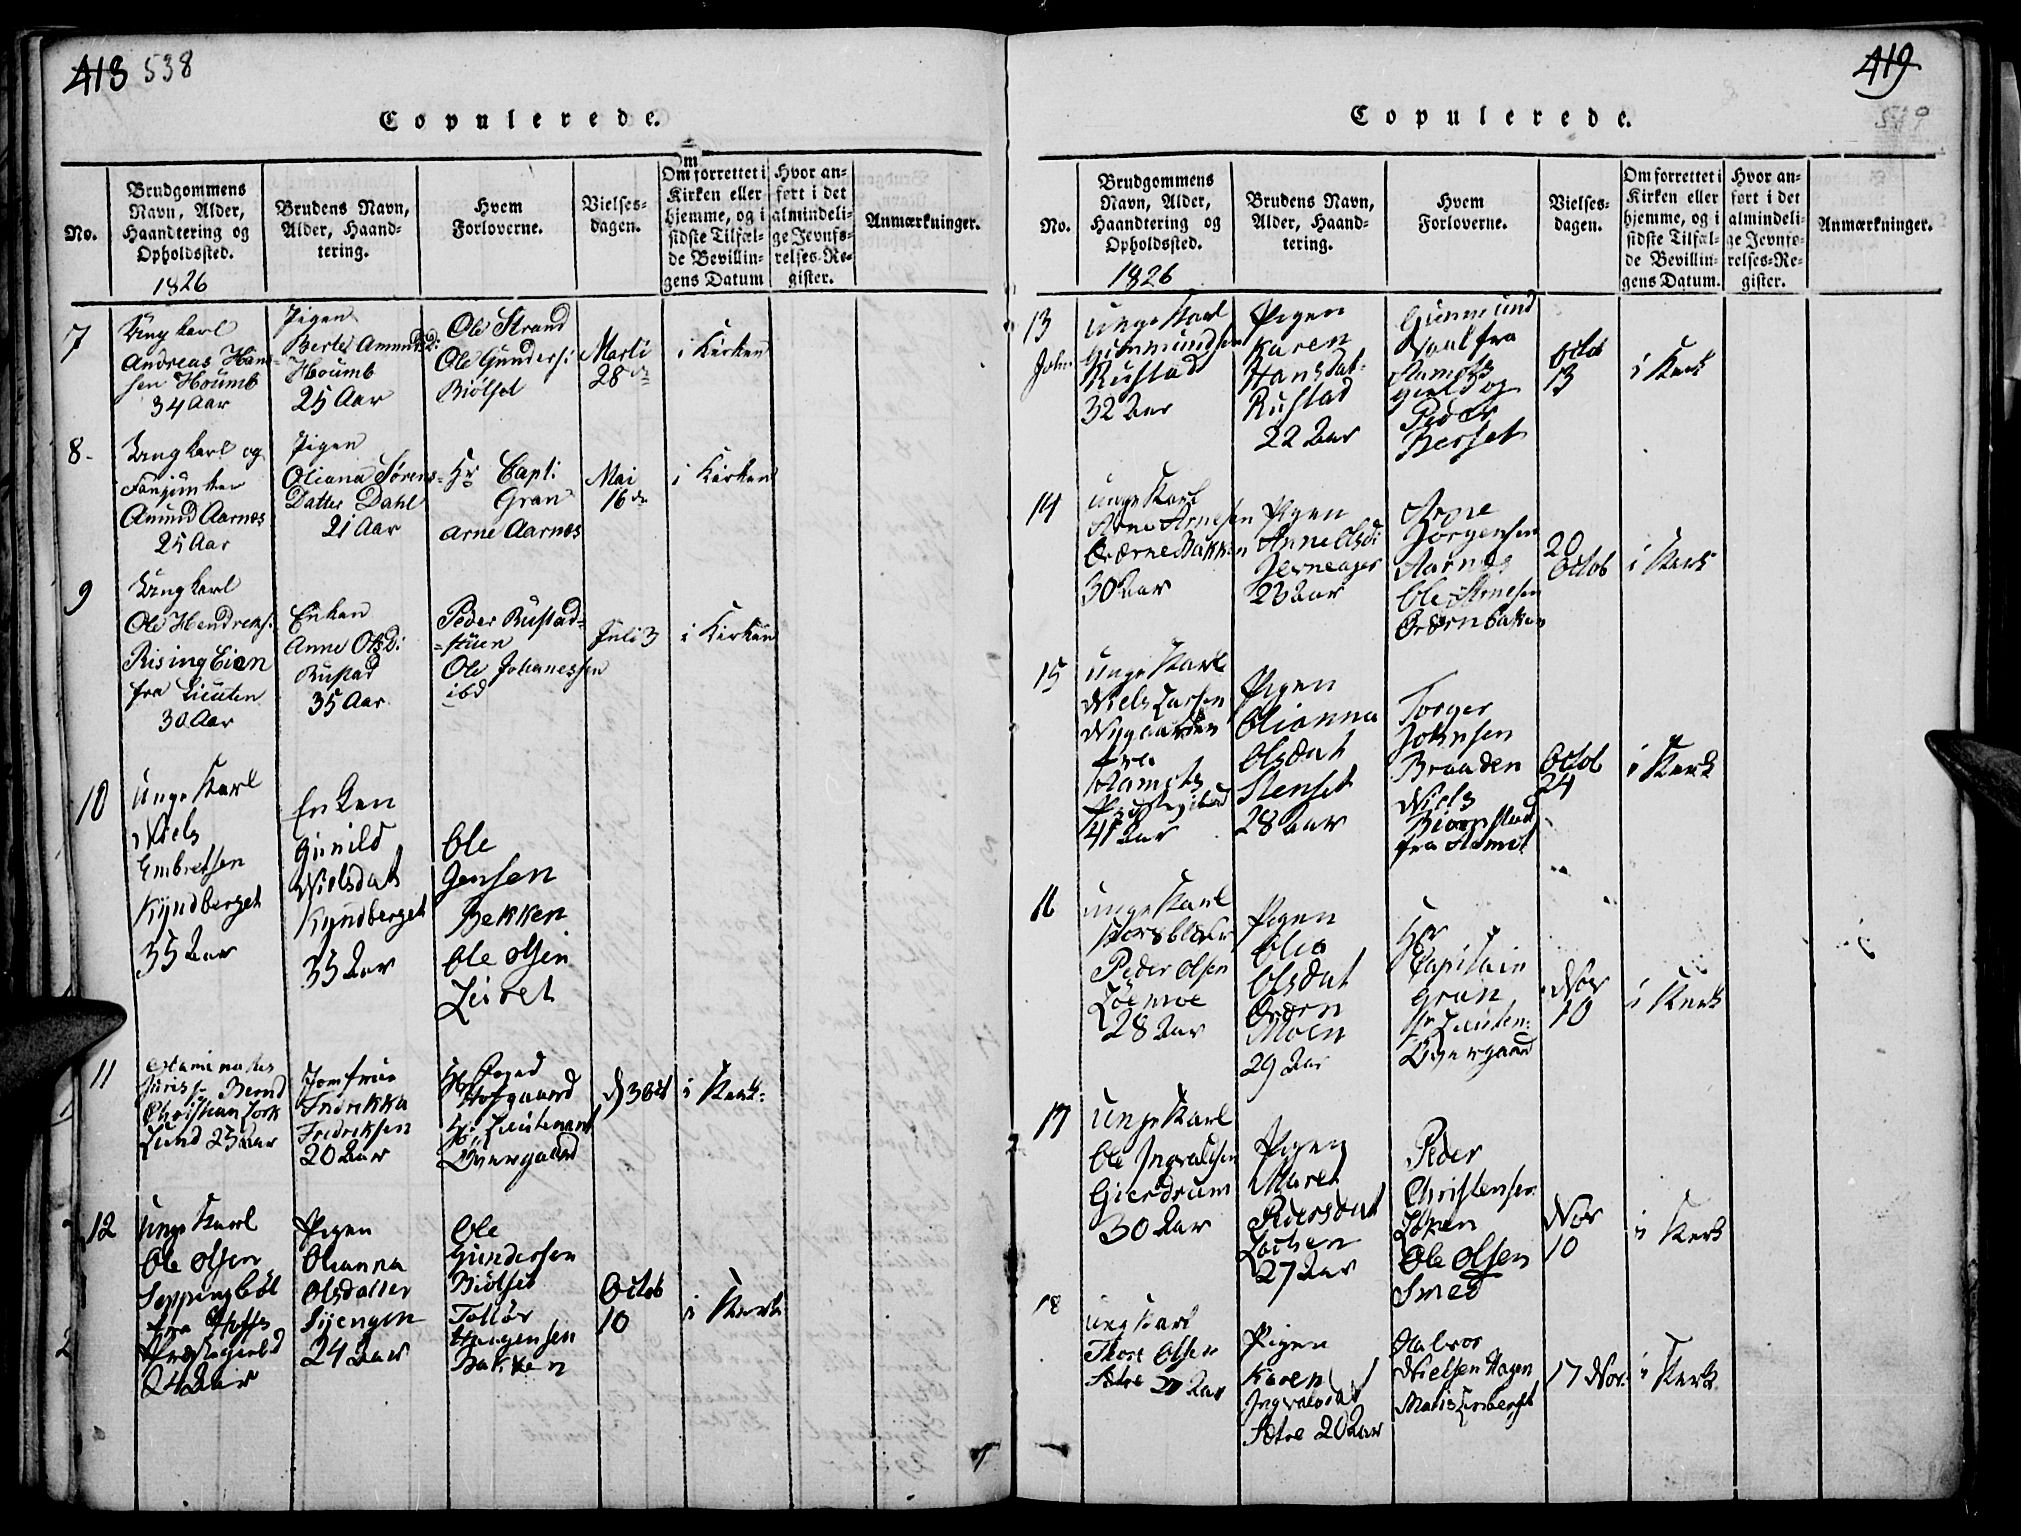 418 538
Copulerede.
No.
Brudgommens
Navn, Alder,
Haandtering og
Opholdssted.
1826
Brudens Navn,
Alder, Haand-
tering.
Hvem
Forloverne.
Vielses-
dagen.
Om
Om forrettet i
Kirken eller
hjemme, og i
sidste Tilfæl-
de Bevillin-
gens Datum
Hvor an-
ført i det
almindeli-
ge Jevnfø-
relses-Re-
gister.
Anmærkninger.
7
Ungkarl
Andreas Han-
sen Houmb
34 Aar
Pigen
Berte Amunds D:
Houmb
25 Aar
Ole Strand
Ole Gunders:
Biølset
Marti
28de
i Kirken
8.
Ungkarl og
Fanejunker
Amund Aarnes
25 Aar
Pigen
Oliana Sørens-
Datter Dahl
21 Aar
Hr Capt:
Gran
Arne Aarnes
Mai
16de
i Kirken
9
Ungkarl
Ole Hendreks:
Rising Eien
fra Lieuten
30 Aar
Enken
Anne Ols D:
Rustad
35 Aar
Peder Rustad-
stuen
Ole Johanessen
ibd
Juli 3
i Kirken
10
Unge Karl
Niels
Embretsen
Kyndberget
35 Aar
Enken
Gunild
Nielsdat
Kyndberget
35 Aar
Ole
Jensen
Bekken
Ole Olsen
Leiret
11
Examinatus
Juris Hr Bernd
Christian
Lund 25 Aar
Jomfrue
Fredrikka
Fredriksen
20 Aar
Hr Foged
Hofgaard
Hr: Lieutenant
Overgaard
i Kerk:
12
Unge Karl
Ole Olsen
Seppingbøl
fra Hoffs
Præstegield
24 Aar
Pigen
Olianna
Olsdatter
Sijengen
24 Aar
Ole
Gundersen
Biølset
Tollør
Haagensen
Bakken
Octob
10
i Kerk:
419
Copulerede.
No.
Brudgommens
Navn, Alder,
Haandtering og
Opholdssted.
1826
Brudens Navn,
Alder, Haand-
tering.
Hvem
Forloverne.
Vielses-
dagen.
Om forrettet i
Kirken eller
hjemme, og i
sidste Tilfæl-
de Bevillin-
gens Datum.
Hvor an-
ført i det
almindeli-
ge Jevnfø-
relses-Re-
gister.
Anmærkninger.
13
Unge Karl
John Gunmundsen
Rustad
32 Aar
Pigen
Karen
Hansdat:
Rustad
22 Aar
Gunmund
fra
og
Peder
Berset
Octob
13
i Kerk
14
Unge Karl
Arne Arnesen
OrærneBakken
30 Aar
Pigen
Anne Olsd:
Jerneager
23 Aar
Arne
Jørgensen
Aarnes
Ole Arnesen
Orærnbaken
20
Octob
i Kerk
15
Unge Karl
Niels Larsen
Nygaarden
fra
Aamots
Præstegield
41 Aar
Pigen
Olianna
Olsdat
Stenset
28 Aar
Torger
Johnsen
Braaden
Niels
Biørnstad
fra Aamot
Octob
24
i Kerk
16
Unge Karl
Peder Olsen
Løemoe
28 Aar
Pigen
Olea
Olsdat
Orærn
Moen
29 Aar
Hr
Capitain
Gran
Hr Lieuten:
Overgaard
Nov
10
i Kerk
17
Unge Karl
Ole Ingvaldsen
Gierdrum
30 Aar
Pigen
Maret
Pedersdat
Lochen
27 Aar
Peder
Christensen
Løken
Ole Olsen
Smed
Nov
10
i Kerk
18
Ung Karl
Thore Olsen
Sætre 27 Aar
Pigen
Karen
Ingvaldsdat
Sætre 20 Aar
Halvor
Nielsen Hagen
17 Nov:
i Kerk